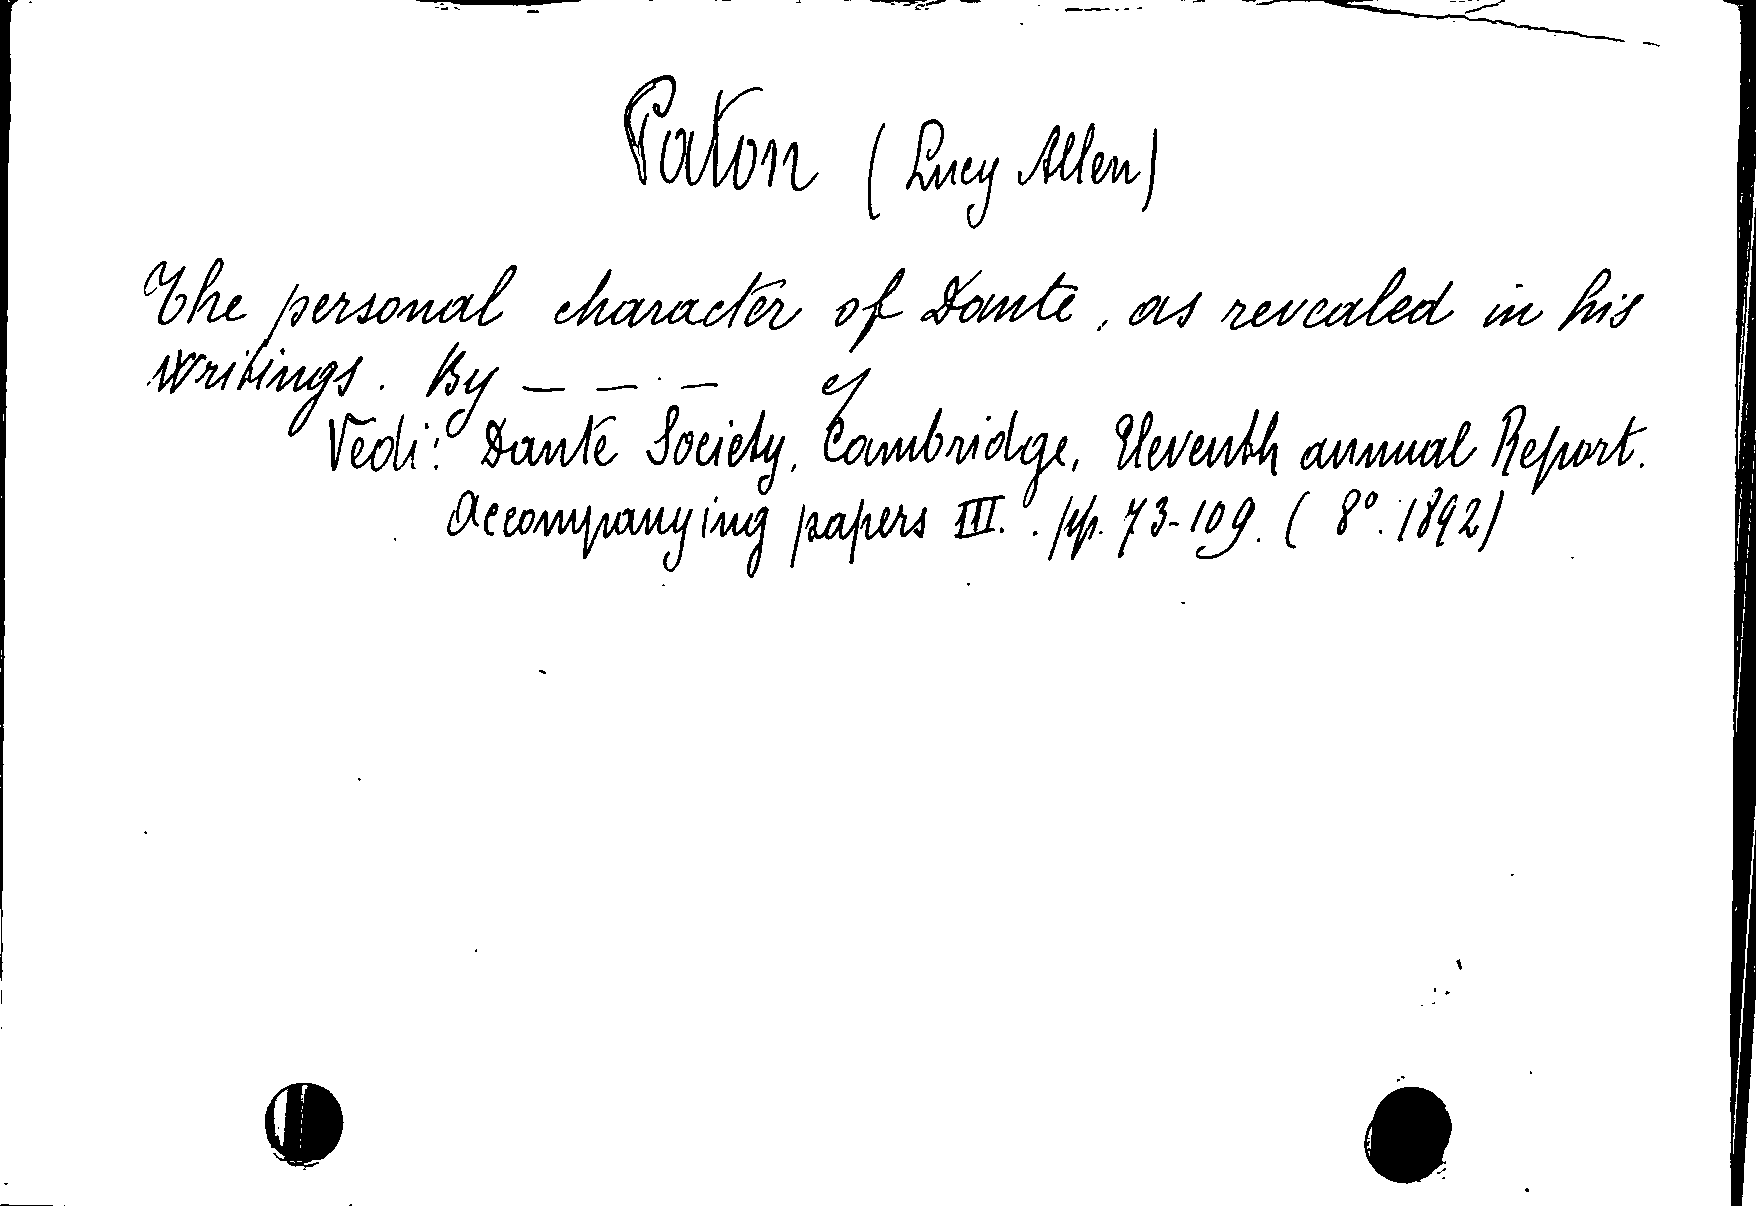 Paton (Lucy Allen)
The personal character of Dante, as revealed in his
Writings. By — — — of
Vedi: Dante Society, Cambridge, Eleventh annual Report.
Accompanying papers III. . pp. 73-109. ( 8°. 1892)